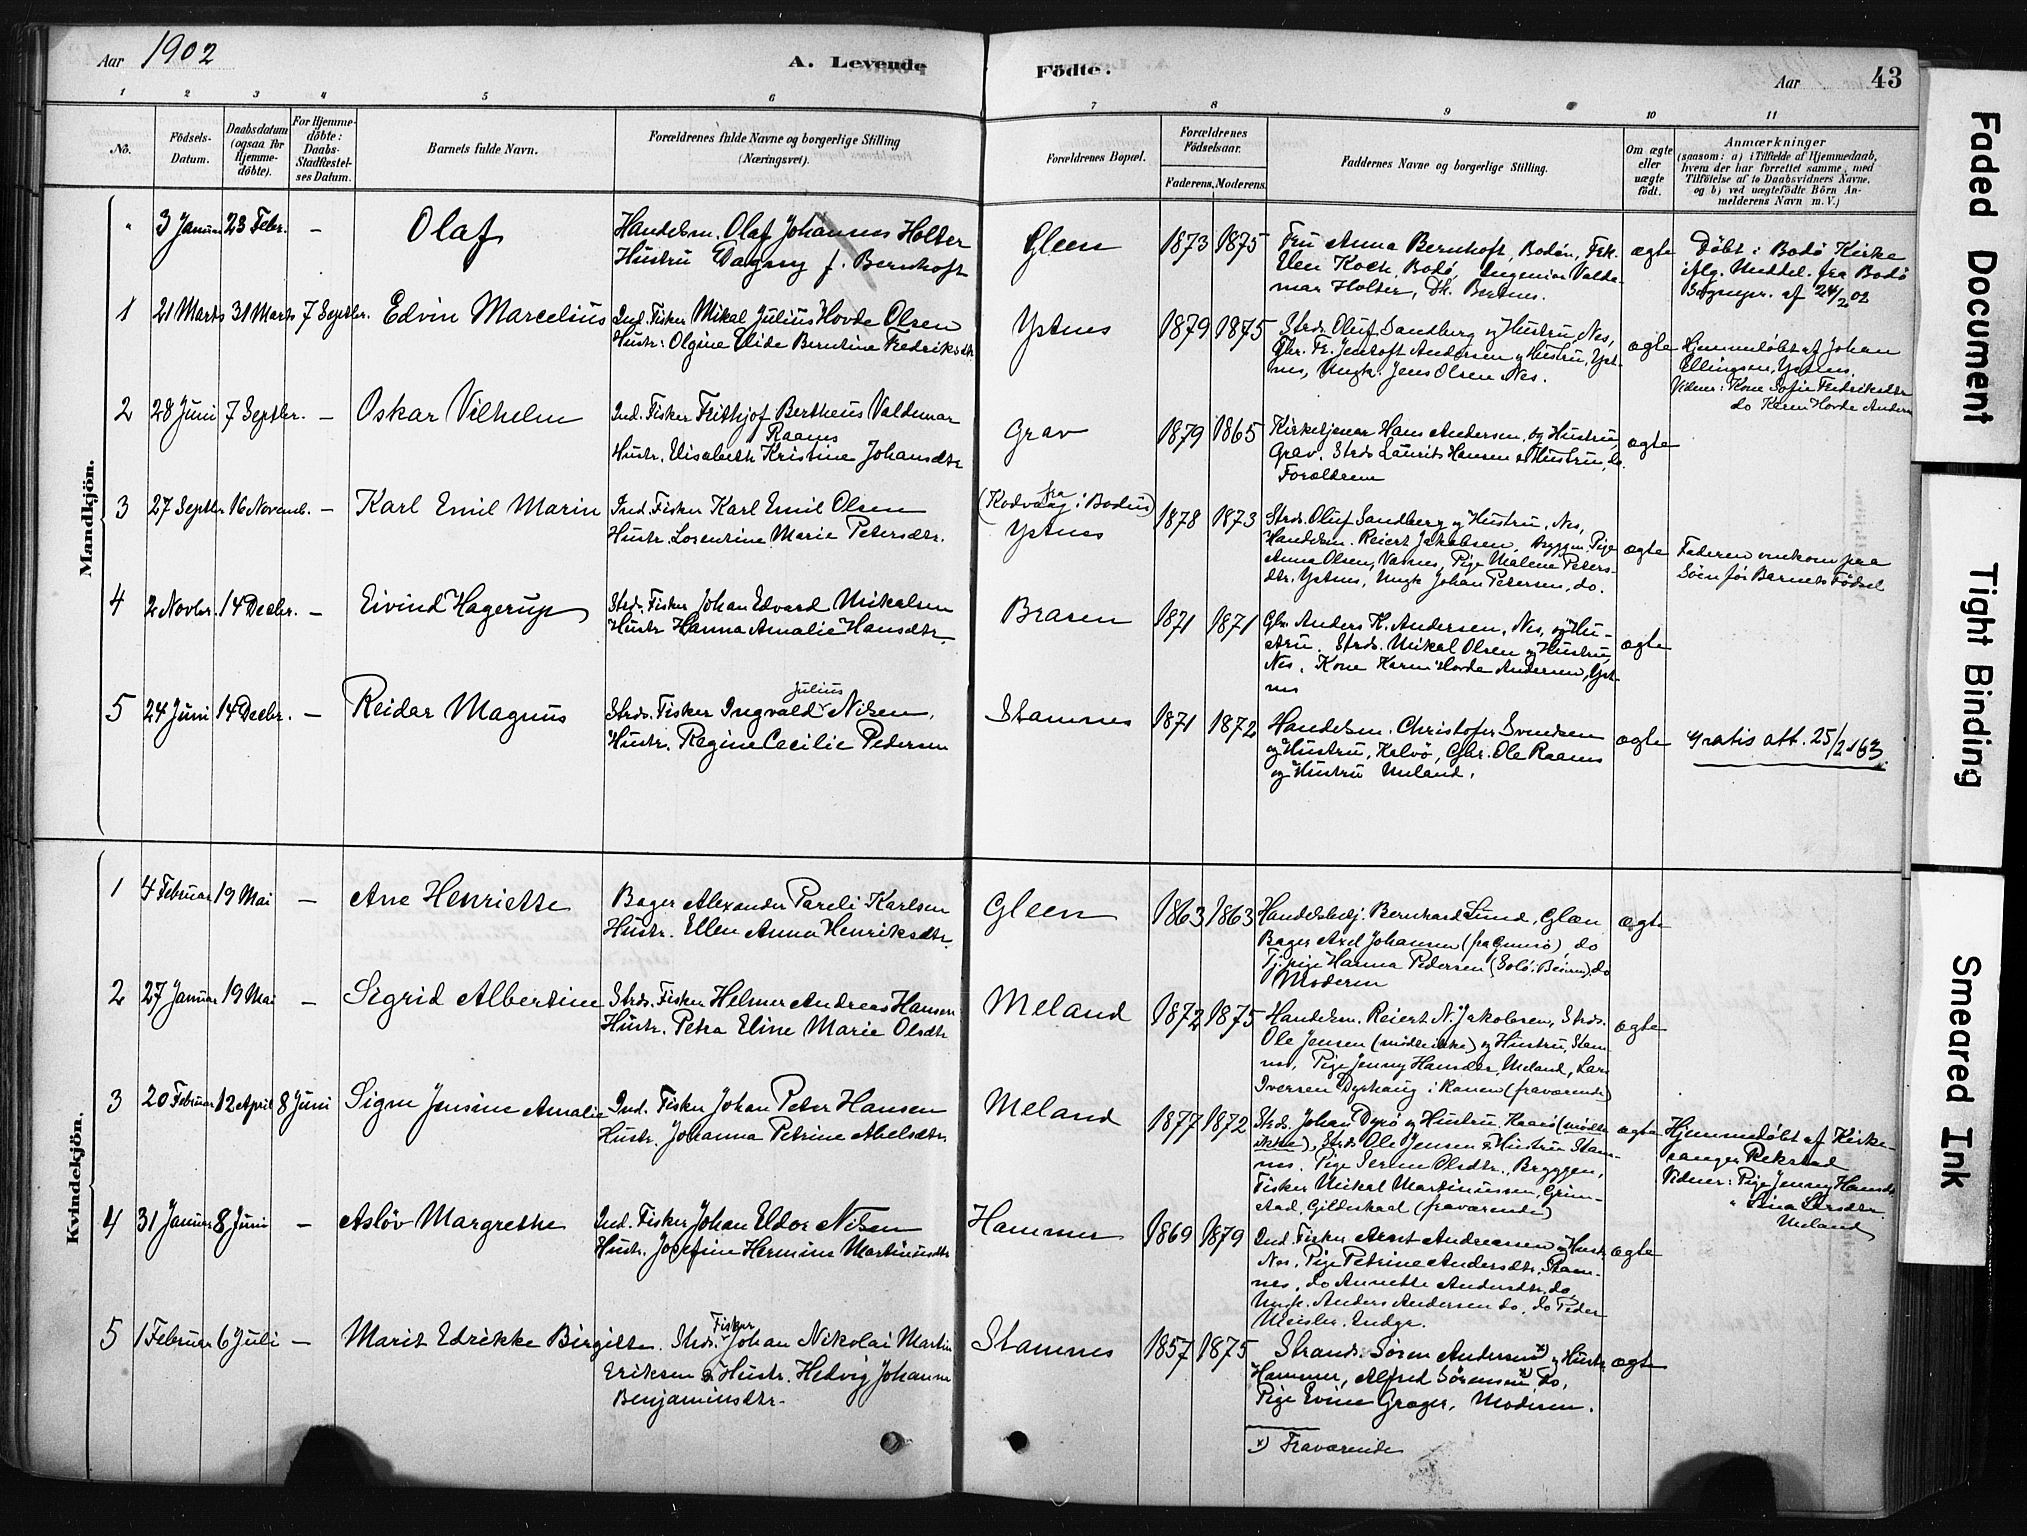 Aar 1902
A. Levende Födte.
Aar
43
1 2 3 4 5 6 7 8 9 10 11
No.
Födsels-Datum.
Daabsdatum (ogsaa for Hjemme-döbte).
For Hjemme-döbte: Daabs-Stadfæstel-ses Datum.
Barnets fulde Navn.
Forældrenes fulde Navne og borgerlige Stilling (Næringsvei).
Forældrenes Bopæl.
Forældrenes Födselsaar.
Faderens. Moderens.
Faddernes Navne og borgerlige Stilling.
Om ægte eller uægte födt.
Anmærkninger
(saasom: a) i Tilfælde af Hjemmedaab,
hvem der har forrettet samme, med
Tilföielse af to Daabsvidners Navne,
og b) ved uægtefödte Börn An-
melderens Navn m. V.)
Mandkjön.
" 3 Januar 23 Febr. — Olaf
Handelsm. Olaf Johannes Holter
Hustru Dagny f. Bernhoft
Gleen 1873 1875
Fru Anna Bernhoft, Bodøn, Frk.
Koch, Bodø, Ingeniør Valde-
mar Holter, Dh. Bertnes.
ægte
Døbt i Bodø Kirke
iflg. Meddel. fra Bodø
Sognepr. af 24/2 02
1 21 Marts 31 Marts 7 Septbr. Edvin Marcelius
Ind. Fisker Mikal Julius Hovde Olsen
Hustr: Olgine Elide Berntine Fredriksdtr
Ystnes 1879 1875
Strds. Oluf Sandberg og Hustru, Nes,
Gbr. Fr. Jentoft Andersen og Hustru, Yst-
nes, Ungk. Jens Olsen Nes.
ægte
Hjemmedøbt af Johan
Ellingsen, Ystnes.
Vidner: Kone Sofie Fredriksdtr
do Karen Hovde Andersen
2 28 Juni 7 Septbr. — Oskar Vilhelm
Ind. Fisker Frithjof Bertheus Valdemar
Raanes
Hustr. Elisabeth Kristine Johansdtr
Grav 1879 1865
Kirketjener Hans Andersen, og Hustru,
Grav. Strds Laurits Hansen & Hustru, do.
Forældrene
ægte
3 27 Septbr 16 Novemb. — Karl Emil Marin
Ind. Fisker Karl Emil Olsen
Hustr. Lorentine Marie Petersdtr.
(fra Kodvaag i Bodin)
Ystnes 1878 1873
Strds. Oluf Sandberg og Hustru, Nes,
Handelsm. Reiert Jakobsen, Bryggen, Pige
Anna Olsen, Vatnes, Pige Malene Peters-
dtr. Ystnes, Ungk Johan Petersen, do.
ægte
Faderen omkom paa
Søen før Barnets Fødsel
4 2 Novbr. 14 Decbr. — Eivind Hagerup
Strds. Fisker Johan Edvard Mikalsen
Hustr Hanna Amalie Hansdtr
Brasen 1871 1871
Gbr. Anders K. Andersen, Nes, og Hu-
stru. Strds. Mikal Olsen og Hustru
Nes, Kone Karen Hovde Andersen, Yst-
nes
ægte
5 24 Juni 14 Decbr. — Reidar Magnus
Strds. Fisker Ingvald Julius Nilsen.
Hustr. Regine Cecilie Pedersen
Stamnes 1871 1872
Handelsm. Christofer Svendsen
og Hustru, Kalvø, Gbr. Ole Raanes
og Hustru Meland.
ægte
Gratis att. 25/2 163
Kvindekjön.
1 4 Februar 19 Mai — Ane Henriette
Bager Alexander Pareli Karlsen
Hustr. Ellen Anna Henriksdtr.
Gleen 1863 1863
Handelsbetj. Bernhard Lund, Glæn
Bager Axel Johansen (fra ), do
Tj. pige Hanna Pedersen (Solø i Beiarn), do
Moderen
ægte
2 27 Januar 19 Mai — Sigrid Albertine
Strds. Fisker Helmer Andreas Hansen
Hustr. Petra Eline Marie Olsdtr
Meland 1872 1875
Handelsm. Reiert N. Jakobsen, Strds.
Ole Jensen (mødte ikke) og Hustru, Stam-
nes, Pige Jenny Hansdtr Meland, Lars
Iversen Dyrhaug i Ranen (fraværende)
ægte
3 20 Februar 12 April 8 Juni Signe Jensine Amalie
Ind. Fisker Johan Peter Hansen
Hustr. Johanna Petrine Abelsdtr.
Meland 1877 1872
Strds. Johan Dyrø og Hustru Kaarø (mødte
ikke), Strds Ole Jensen & Hustru Stam-
nes. Pige Serine Olsdtr. Bryggen,
Fisker Mikal Martinussen, Grim-
stad, Gildeskaal (fraværende)
ægte
Hjemmedøbt af Kirke-
sanger Rekstad
Vidner: Pige Jenny Hansdtr
" Lina Larsdtr.
Meland
4 31 Januar 8 Juni — Asløv Margrethe
Ind. Fisker Johan Eldor Nilsen
Hustr. Josefine Hermine Martinusdtr
Hammer 1869 1879
Ind. Fisker Arnt Andreassen og Hustr.
Nes. Pige Petrine Andersdtr. Stam-
nes, do Annette Andersdtr. do,
Ungk. Anders Andersen do, do Peder
Meisler. Indgr.
ægte
5 1 Februar 6 Juli — Marit Edrikke Birgitte.
Strds. Fisker Johan Nikolai Martin
Eriksen & Hustr. Hedvig Johanne
Benjaminsdtr.
Stamnes 1857 1875
Strands. Søren Andersen x) og Hustr.
Hammer, Alfred Sørensen x) do,
Pige Evine Grøger, Moderen.
x) Fraværende
ægte
Faded Document
Tight Binding
Smeared Ink